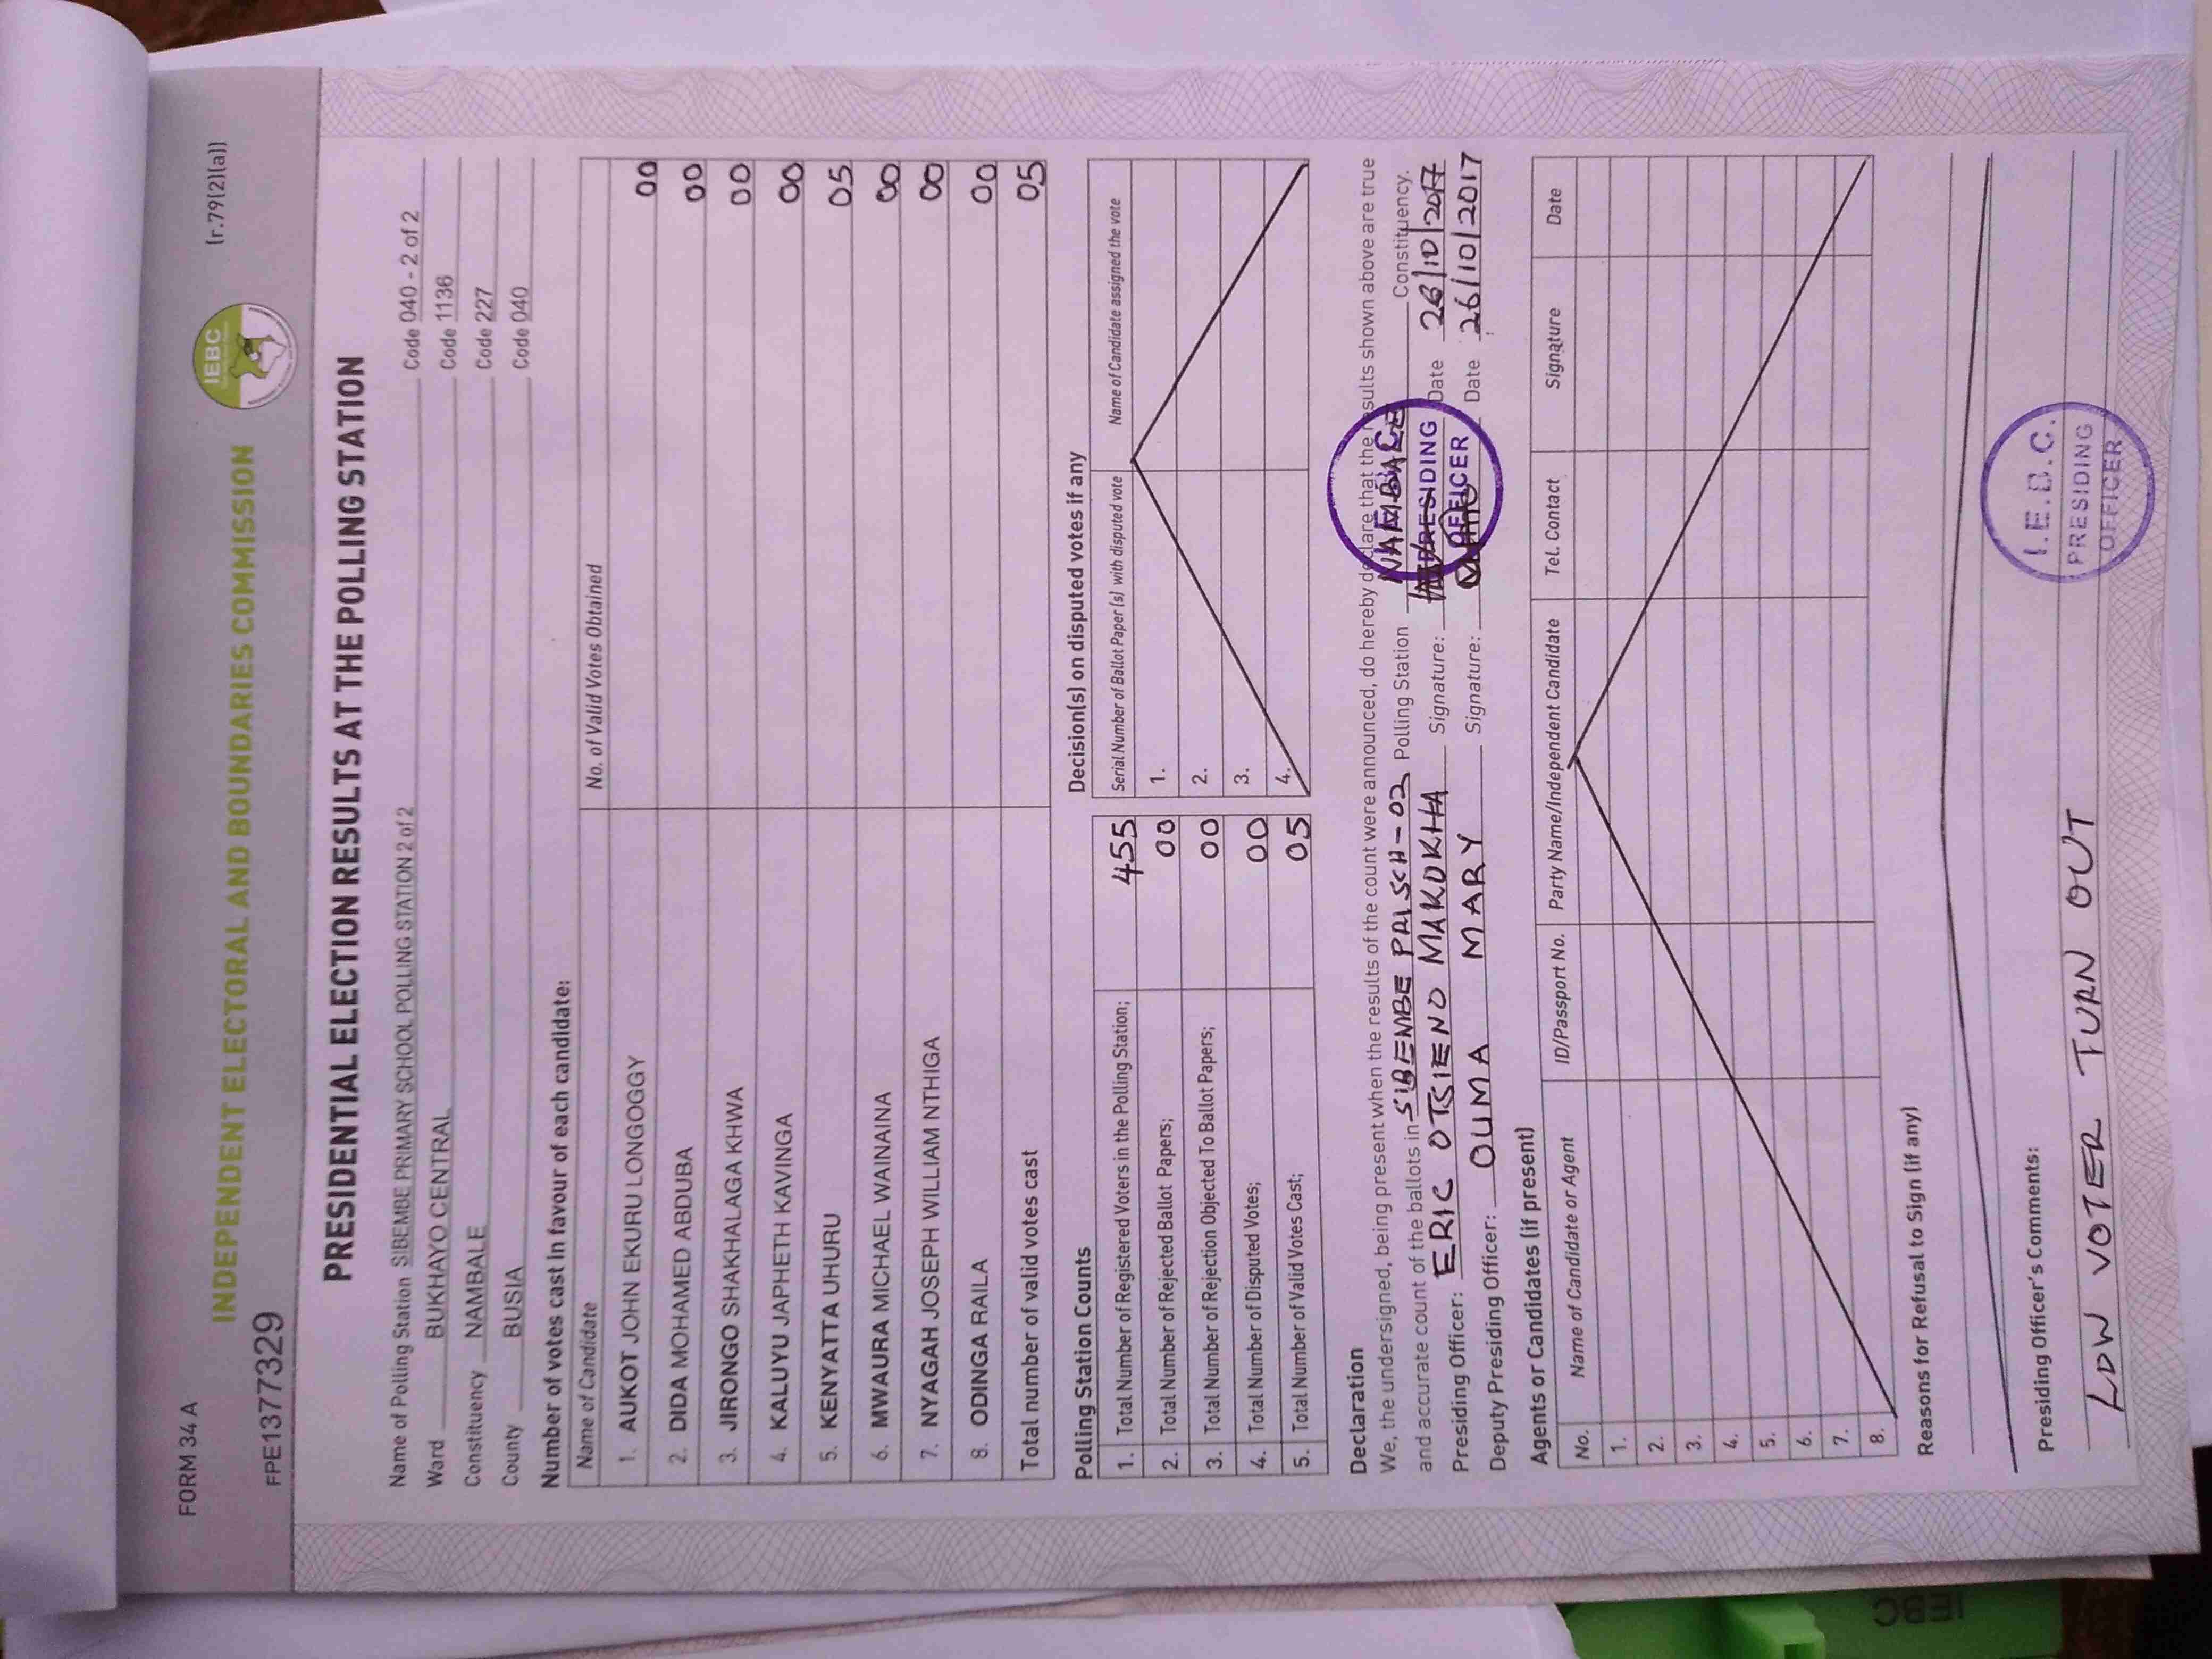 FORM 34 A
(r.79(2)(a))
IEBC
INDEPENDENT ELECTORAL AND BOUNDARIES COMMISSION
FPE1377329
PRESIDENTIAL ELECTION RESULTS AT THE POLLING STATION
Name of Polling Station SIBEMBE PRIMARY SCHOOL POLLING STATION 2 of 2 Code 040 - 2 of 2
Ward BUKHAYO CENTRAL Code 1136
Constituency NAMBALE Code 227
County BUSIA Code 040
Number of votes cast in favour of each candidate:
Name of Candidate No. of Valid Votes Obtained
1. AUKOT JOHN EKURU LONGOGGY 00
2. DIDA MOHAMED ABDUBA 00
3. JIRONGO SHAKHALAGA KHWA 00
4. KALUYU JAPHETH KAVINGA 00
5. KENYATTA UHURU 05
6. MWAURA MICHAEL WAINAINA 00
7. NYAGAH JOSEPH WILLIAM NTHIGA 00
8. ODINGA RAILA 00
Total number of valid votes cast 05
Polling Station Counts
1. Total Number of Registered Voters in the Polling Station; 455
2. Total Number of Rejected Ballot Papers; 00
3. Total Number of Rejection Objected To Ballot Papers; 00
4. Total Number of Disputed Votes; 00
5. Total Number of Valid Votes Cast; 05
Decision(s) on disputed votes if any
Serial Number of Ballot Paper(s) with disputed vote Name of Candidate assigned the vote
1.
2.
3.
4.
Declaration
We, the undersigned, being present when the results of the count were announced, do hereby declare that the results shown above are true
and accurate count of the ballots in SIBEMBE PRI SCH-02 Polling Station NAMBALE Constituency.
Presiding Officer: ERIC OTSIENO MAKOKHA Signature: Date 26/10/2017
Deputy Presiding Officer: OUMA MARY Signature: Date 26/10/2017
PRESIDING
OFFICER
Agents or Candidates (if present)
No. Name of Candidate or Agent ID/Passport No. Party Name/Independent Candidate Tel. Contact Signature Date
1.
2.
3.
4.
5.
6.
7.
8.
Reasons for Refusal to Sign (if any)
Presiding Officer's Comments:
LOW VOTER TURN OUT
I.E.B.C.
PRESIDING
OFFICER
IEBC